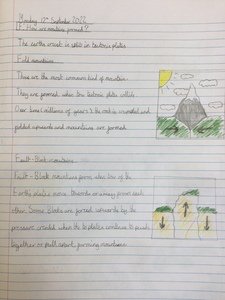 Monday 12th September 2022
LF: How are mountains formed?
The earths crust is split in tectonic plates
Fold mountains
These are the most common kind of mountain.
They are formed when two tectonic plates collide.
Over time (millions of years) the rock is crumbled and
folded upwards and mountains are formed.
Fault-Block mountains
Fault-Block mountains form when two of the
Earths plates move towards or away from each
other. Some blocks are forced upwards by the
pressure created when the to plates continue to push
together or pull apart, forming mountains.